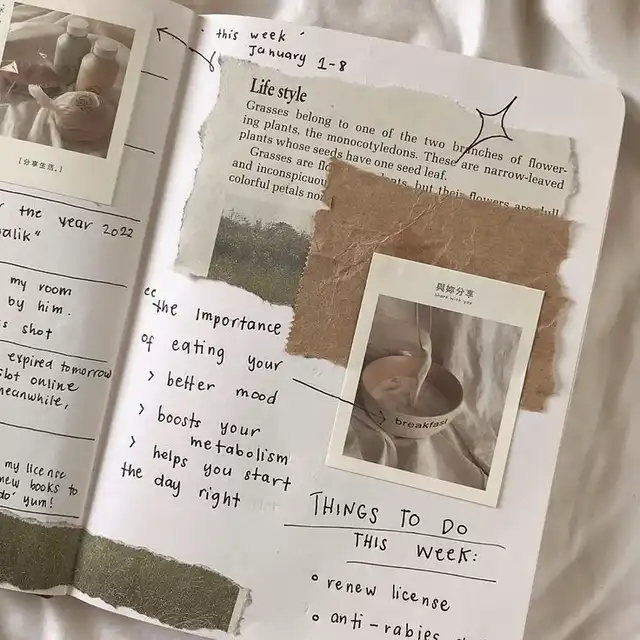 [分享生活。]
the year 2022
my room
by him.
shot
expired tomorrow
slot online
meanwhile,
my license
new books to
yum!
"this week"
January 1-8
Life style
Grasses belong to one of the two branches of flower-
ing plants, the monocotyledons. These are narrow-leaved
plants whose seeds have one seed leaf.
Grasses are
but their flowers are dull
and inconspicuous
colorful petals
the importance
of eating your
> better mood
> boosts your
metabolism
> helps you start
the day right
與妳分享
share with you
breakfast
THINGS TO DO
THIS WEEK:
o renew license
o anti-rabies